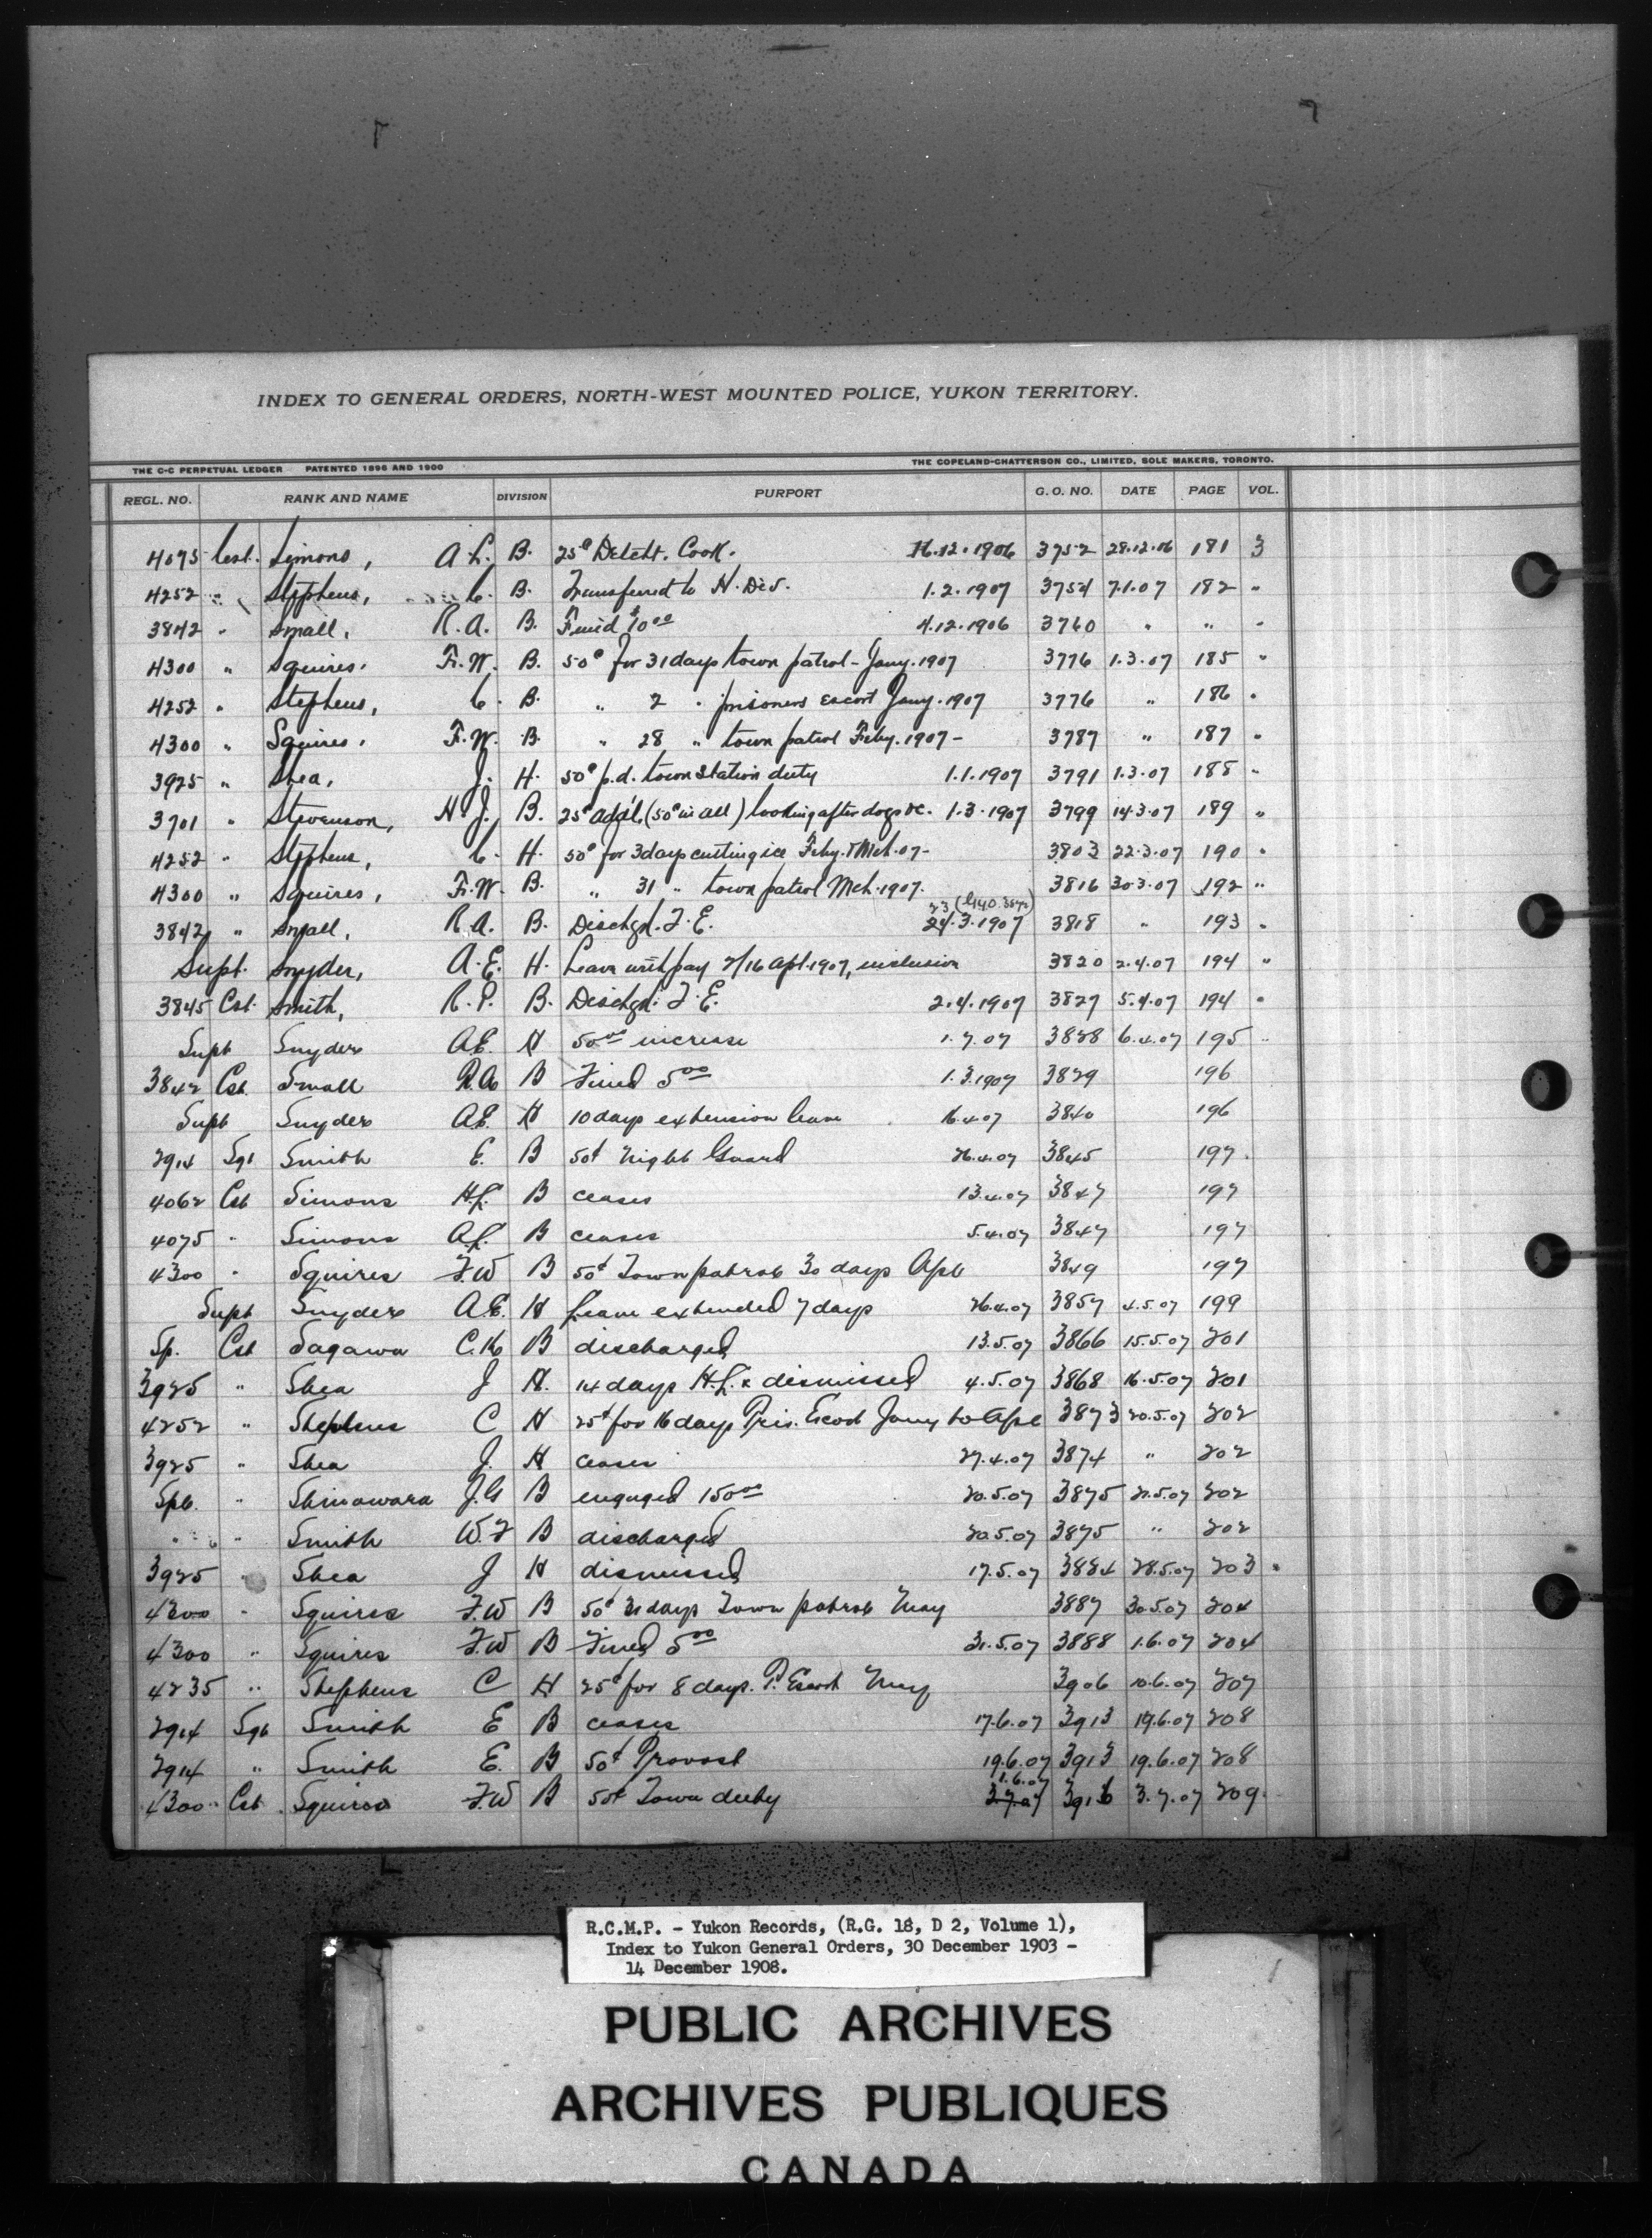 INDEX TO GENERAL ORDERS, NORTH-WEST MOUNTED POLICE, YUKON TERRITORY.
THE C-C PERPETUAL LEDGER PATENTED 1896 AND 1900 THE COPELAND-CHATTERSON CO., LIMITED, SOLE MAKERS, TORONTO.
REGL. NO. RANK AND NAME DIVISION PURPORT G. O. NO. DATE PAGE VOL.
4075 Cst. Simons, A.L. B. 25¢ Detcht. Cook. 16.12.1906 3752 28.12.06 181 3
4252 " Stephens, C. B. Transferred to H. Div. 1.2.1907 3754 7.1.07 182 "
3842 " Small, R.A. B. Fined $10 00 4.12.1906 3760 " " "
4300 " Squires, F.W. B. 50¢ for 31 days town patrol - Jany. 1907 3776 1.3.07 185 "
4252 " Stephens, C. B. " 2 " prisoners escort Jany. 1907 3776 " 186 "
4300 " Squires, F.W. B. " 28 " town patrol Feby. 1907 - 3787 " 187 "
3925 " Shea, J. H. 50¢ p.d. town station duty 1.1.1907 3791 1.3.07 188 "
3701 " Stevenson, H.J. B. 25¢ add'l, (50¢ in all) looking after dogs &c. 1.3.1907 3799 14.3.07 189 "
4252 " Stephens, C. H. 50¢ for 3 days cutting ice Feby. & Mch. 07 - 3803 22.3.07 190 "
4300 " Squires, F.W. B. " 31 " town patrol Mch. 1907. 3816 30.3.07 192 "
3842 " Small, R.A. B. Dischgd. T.E. 23 24.3.1907 3818 " 193 "
Supt. Snyder, A.E. H. Leave with pay 2/16 Apl. 1907, inclusive 3820 2.4.07 194 "
3845 Cst. Smith, R.P. B. Dischgd. T.E. 2.4.1907 3827 5.4.07 194 "
Supt Snyder A.E. H 50 00 increase 1.7.07 3828 6.4.07 195 "
3842 Cst. Small R.A B Fined 5 00 1.3.1907 3829 196
Supt Snyder A.E. H 10 days extension leave 16.4.07 3840 196
2914 Sgt Smith E. B 50¢ Night Guard 26.4.07 3845 197.
4062 Cst Simons H.L. B ceases 13.4.07 3847 197
4075 " Simons A.L. B ceases 5.4.07 3847 197
4300 " Squires F.W B 50¢ Town patrol 30 days Apl 3849 197
Supt Snyder A.E. H Leave extended 7 days 26.4.07 3857 4.5.07 199
Sp. Cst Sagawa C.K B discharged 13.5.07 3866 15.5.07 201
3925 " Shea J H. 14 days H.L. & dismissed 4.5.07 3868 16.5.07 201
4252 " Stephens C H 25¢ for 16 days Pris. Escort Jany to Apl 3873 20.5.07 202
3925 " Shea J. H ceases 27.4.07 3874 " 202
Spl. " Shinawara J.G B engaged 150 00 20.5.07 3875 21.5.07 202
" " Smith W.F B discharged 20.5.07 3875 " 202
3925 " Shea J H dismissed 17.5.07 3884 28.5.07 203 "
4300 " Squires F.W B 50¢ 31 days Town patrol May 3887 30.5.07 204
4300 " Squires F.W B Fined 5 00 31.5.07 3888 1.6.07 204
4235 " Stephens C H 25¢ for 8 days. P. Escort May 3906 10.6.07 207
2914 Sgt Smith E B ceases 17.6.07 3913 19.6.07 208
2914 " Smith E. B 50¢ Provost 19.6.07 3913 19.6.07 208
4300 Cst Squires F.W B 50¢ Town duty 1.6.07 3.7.07 3916 3.7.07 209.
R.C.M.P. - Yukon Records, (R.G. 18, D 2, Volume 1),
Index to Yukon General Orders, 30 December 1903 -
14 December 1908.
PUBLIC ARCHIVES
ARCHIVES PUBLIQUES
CANADA